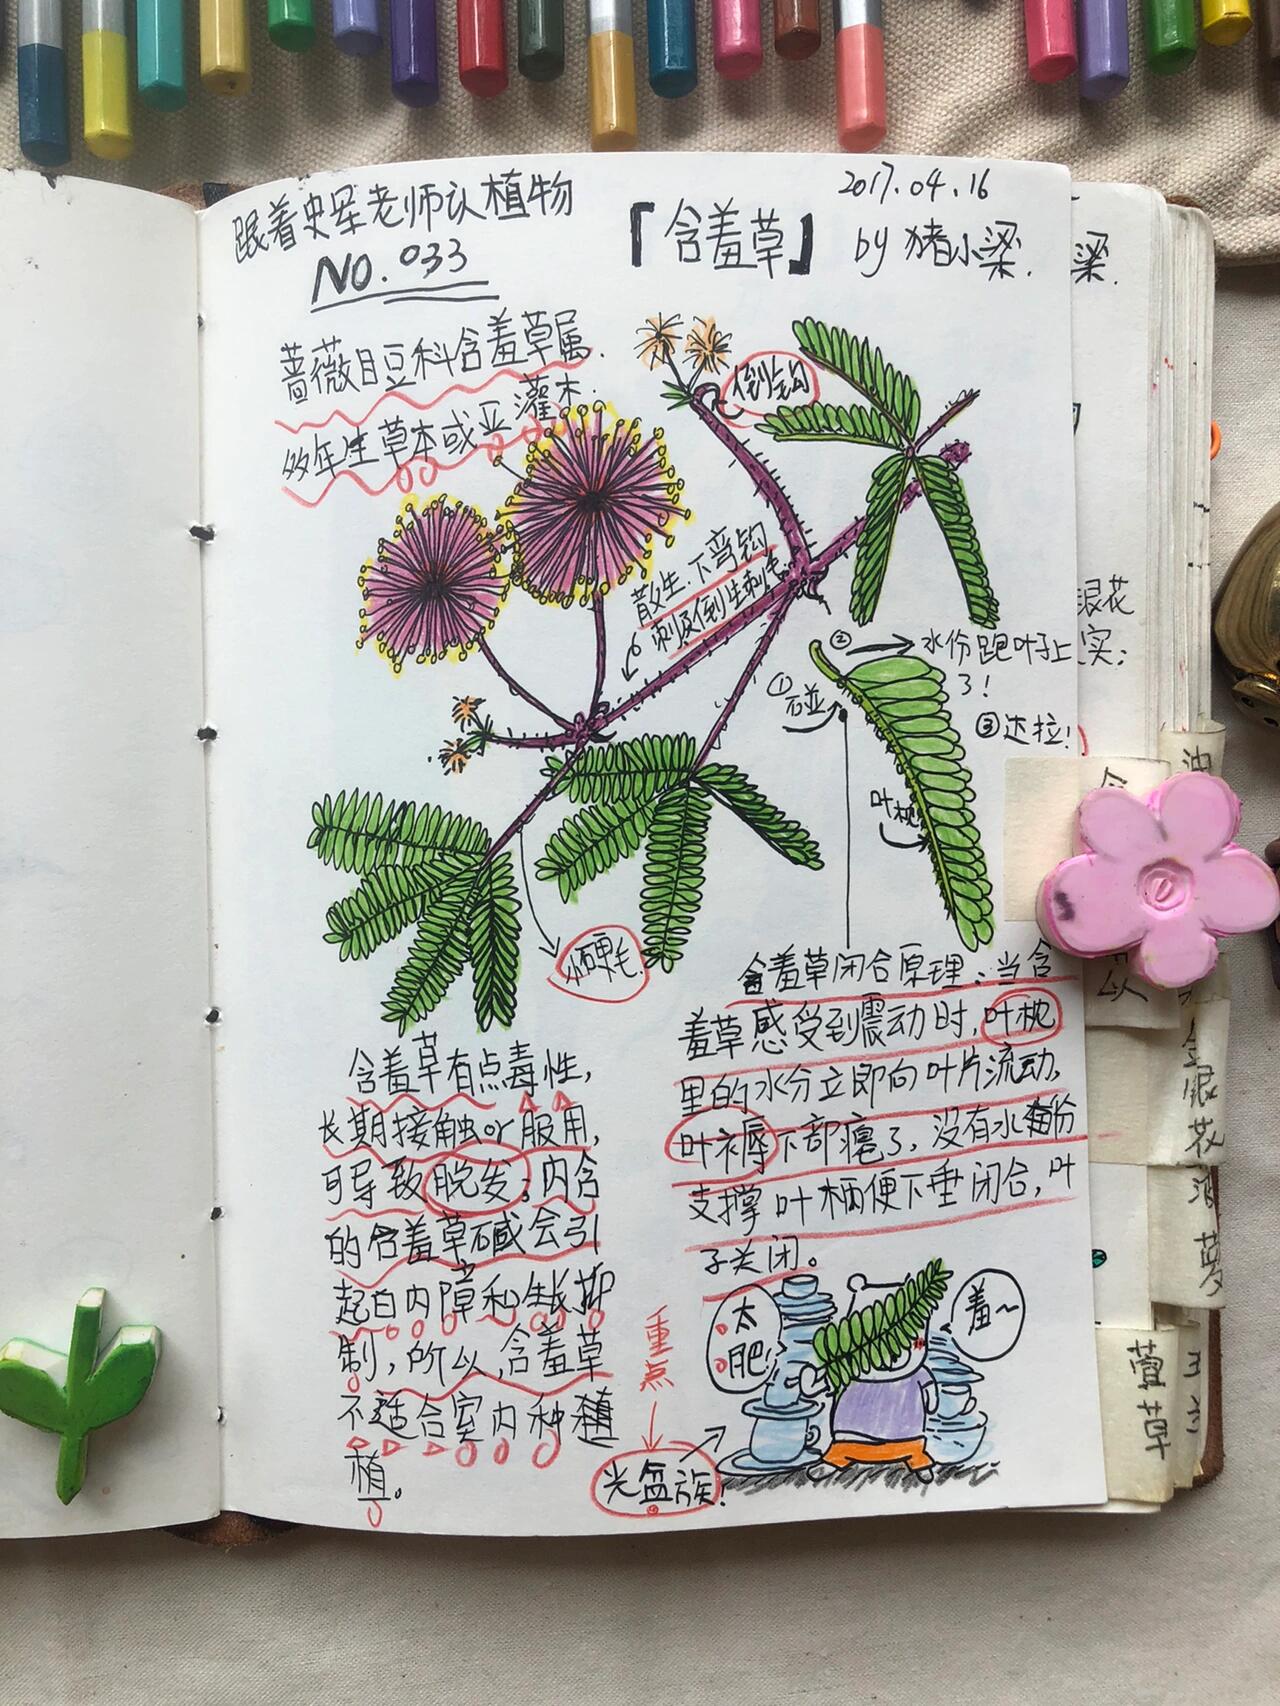 跟着史军老师认植物
NO.033
2017.04.16
「含羞草」
by 猪小梁.
梁.
蔷薇目豆科含羞草属.
多年生草本或亚灌木.
倒钩
散生.下弯钩
刺及倒生刺毛
②
水份跑叶子上
了!
①碰
③达拉!
叶枕
银花
实;
硬毛
含羞草闭合原理:当含
羞草感受到震动时,叶枕
里的水分立即向叶片流动,
叶褥下部瘪了,没有水份
支撑叶柄便下垂闭合,叶
子关闭。
含羞草有点毒性,
长期接触or服用,
可导致脱发;内含
的含羞草碱会引
起白内障和生长抑
制,所以,含羞草
不适合室内种植
植。
重点
光盆族!
太肥!
羞~
金银花
萱草